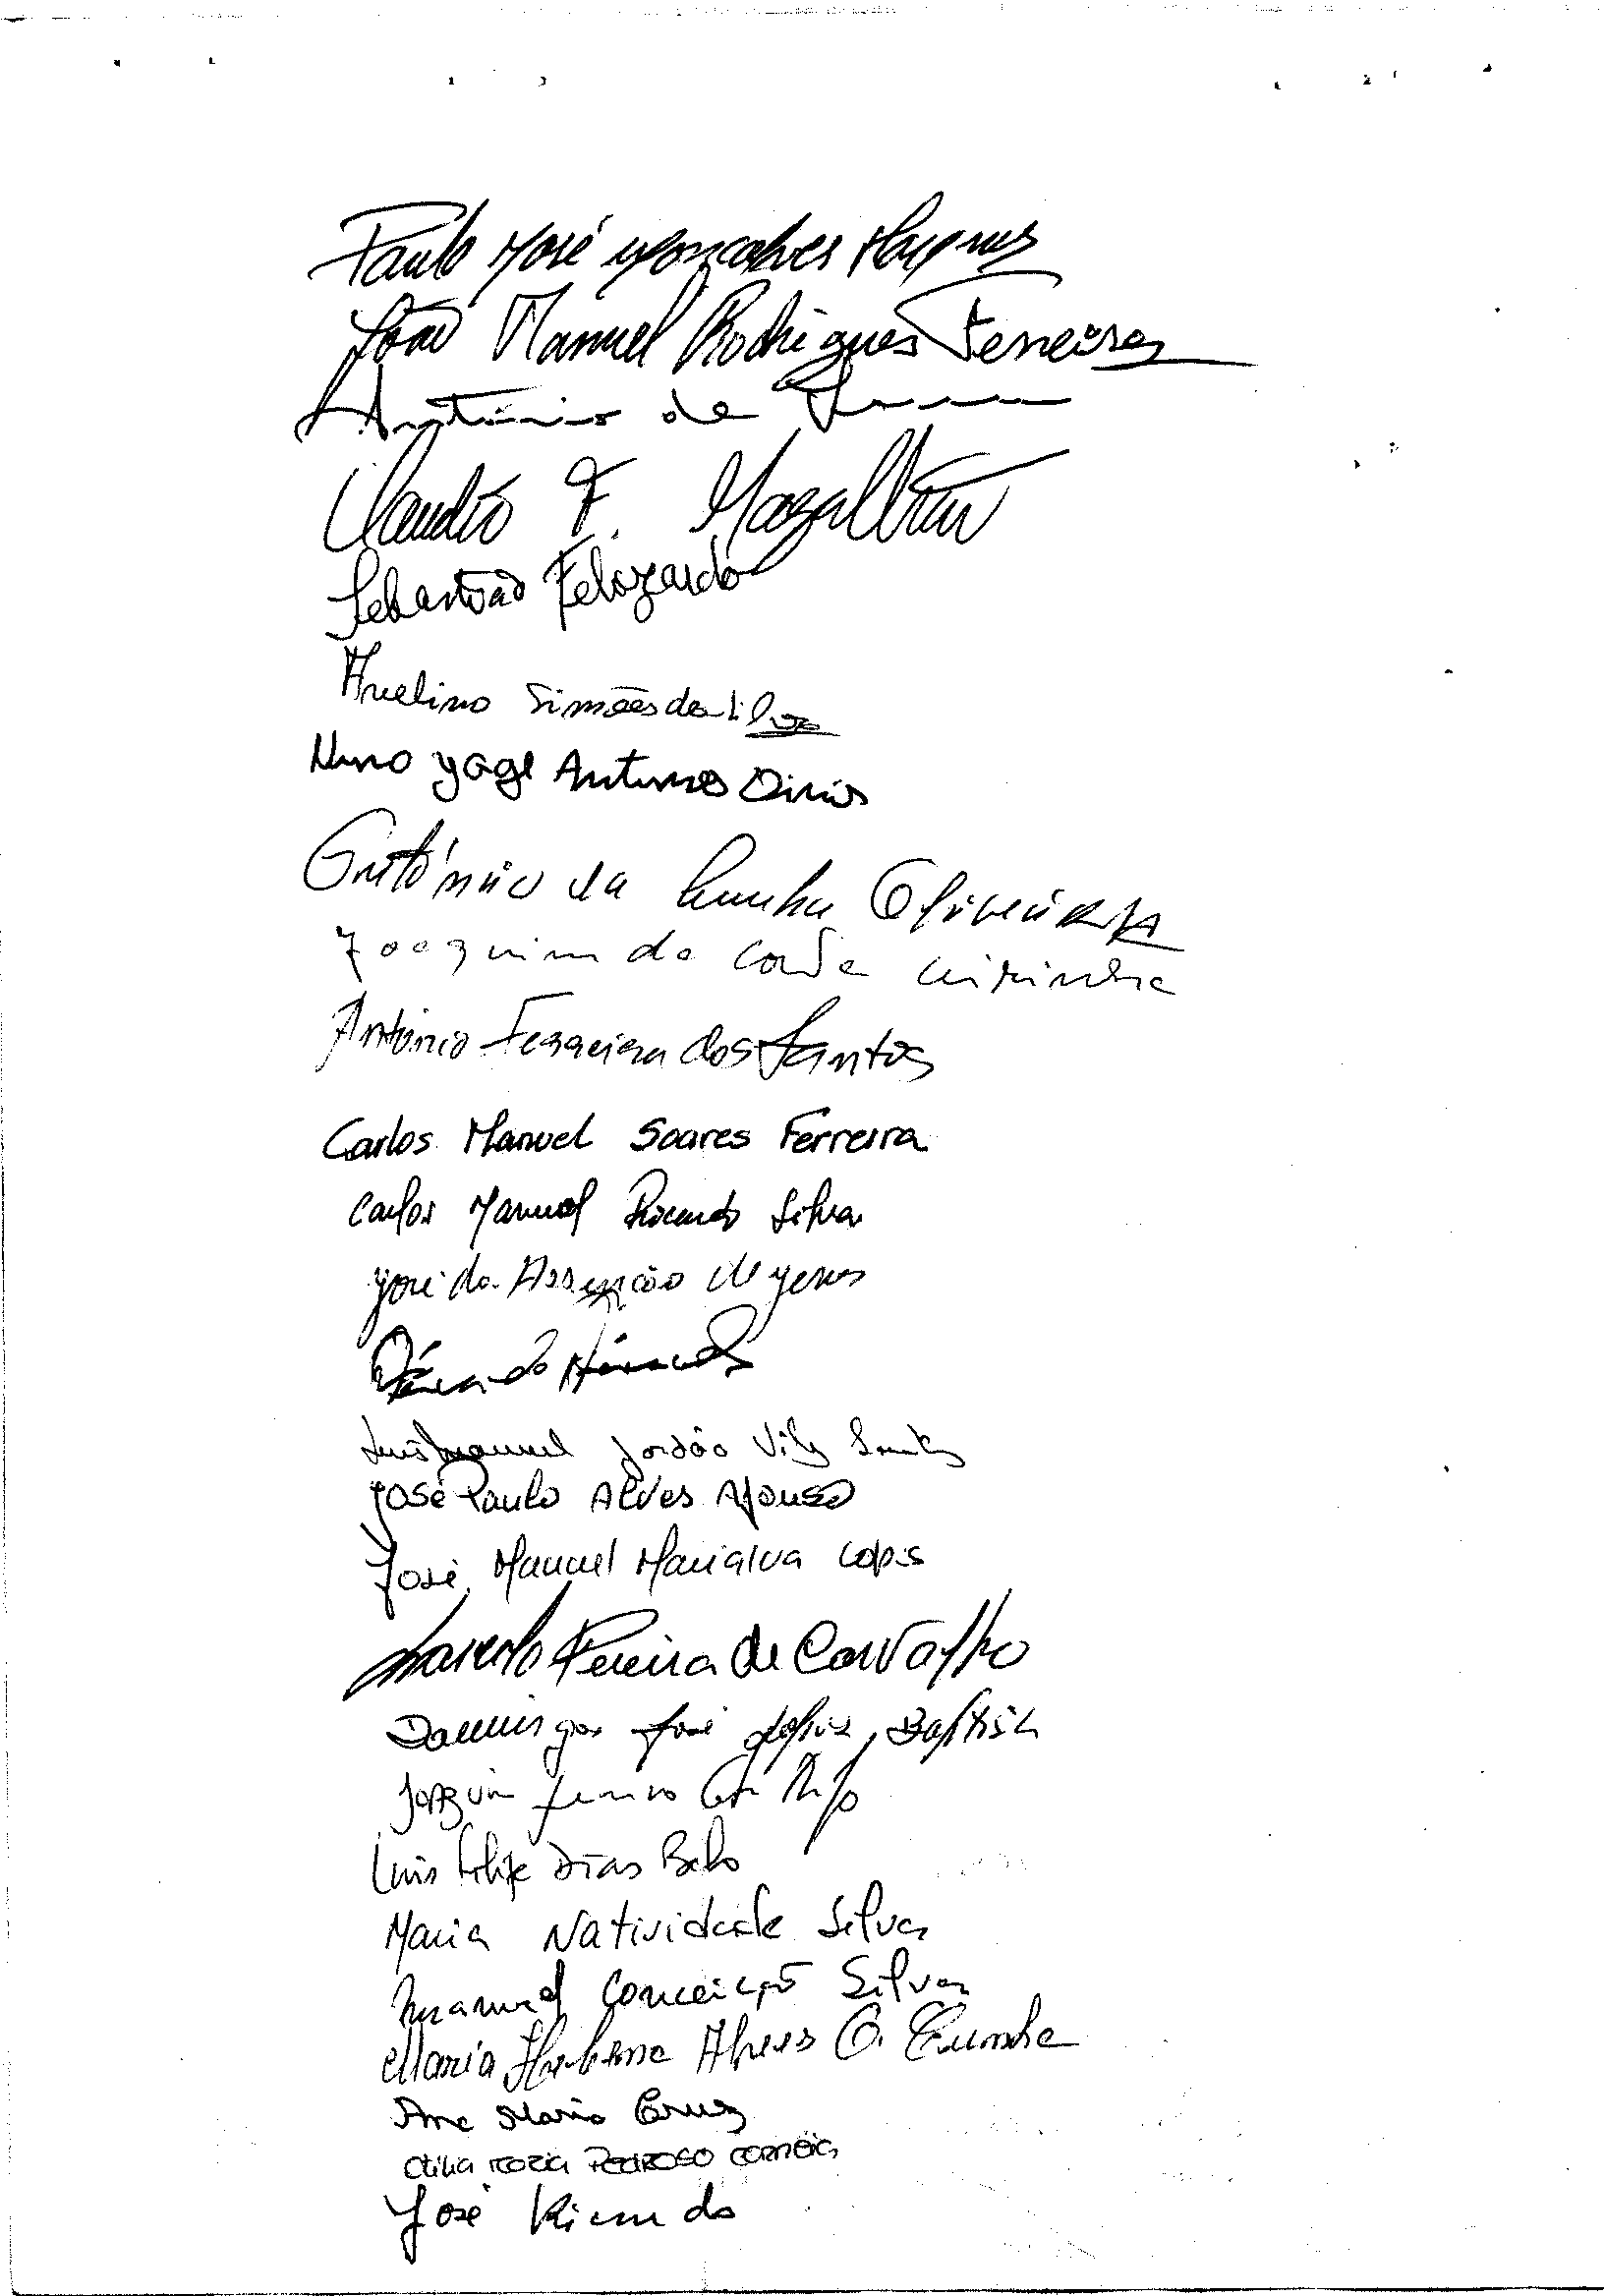 Paulo José Gonçalves
João Manuel Rodrigues Ferreira
António de
Claudio F. Magalhães
Sebastião Felizardo
Avelino Simões da Silva
Nuno Jorge Antunes Dinis
António da Cunha Oliveira
Joaquim da Costa
António Ferreira dos Santos
Carlos Manuel Soares Ferreira
Carlos Manuel Ricardo Silva
José da Assenção de Jesus
Luis Manuel Jordão Santos
José Paulo Alves Afonso
José Manuel Marialva Lopes
Pereira de Carvalho
Domingos José Baptista
Joaquim
Luis Filipe Dias Belo
Maria Natividade Silva
Manuel Conceição Silva
Maria Alves C. Cunha
Ana Maria Cruz
Otilia Pedroso Correia
José Ricardo